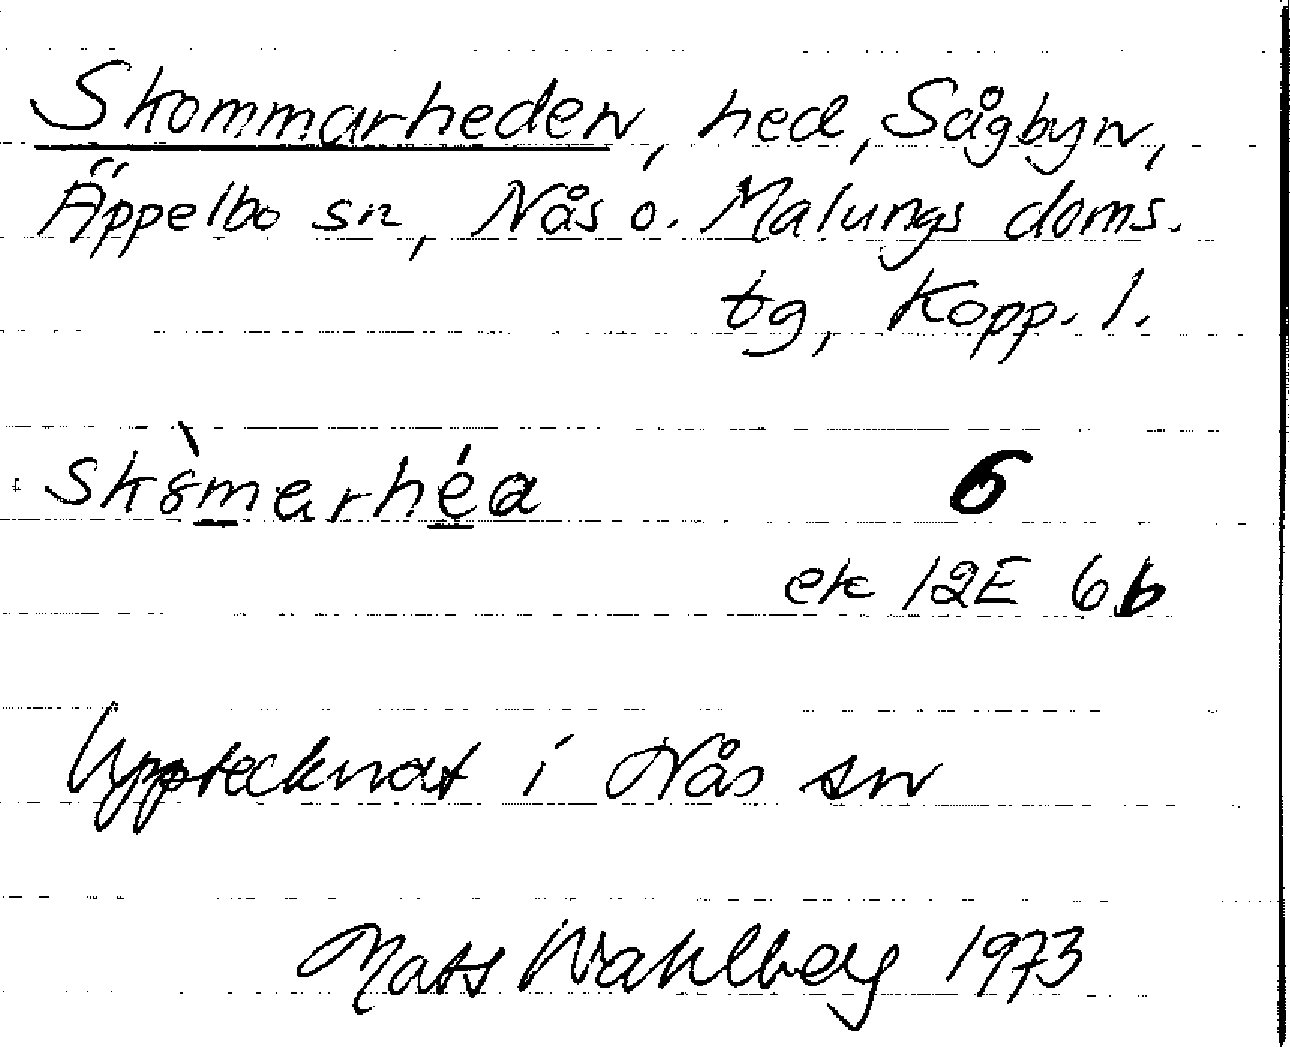 Skommarheden, hed, Sågbyn,
Äppelbo sn, Nås o. Malungs doms.
tg, Kopp. l.
6
ek 12E 6b
Upptecknat i Nås sn
Mats Wahlberg 1973